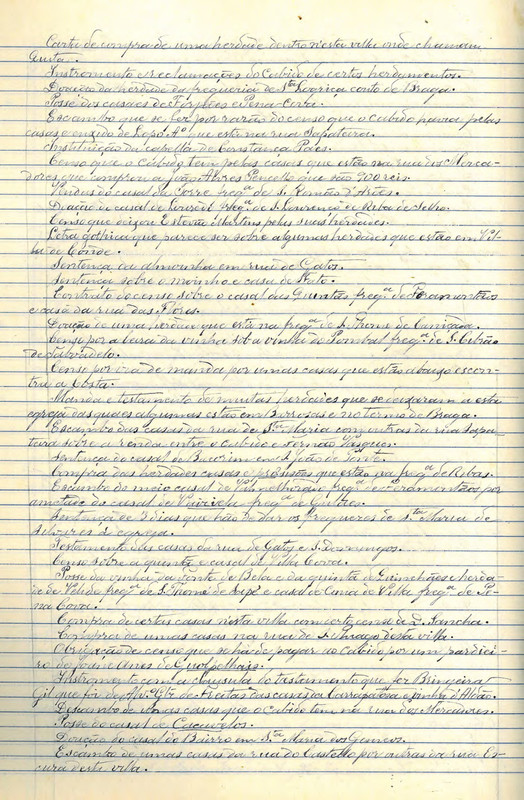 Carta de compra de uma herdade dentro nesta villa onde chamam
Instromento e reclamações do Cabido de certos herdamentos.
Doação da herdade da freguezia de Sta Logrica couto de Braga.
Posse dos casaes de e Pena Cova.
Escambo que se fez por razão do censo que o cabido havia pelas
casas e enxido de Lopo Ao que está na rua Sapateira.
Instituição da capella de Constança Paes.
Censo que o Cabido tem pelas casas que estão na rua dos Merca-
dores que comprou a João Alvres Pencello que são 900 reis.
Vendas do casal da Torre fregª de S. Romão d'
Doação do casal de fregª de S. Lourenço de Riba de Selho.
Censo que deixou Estevão Martins pelas suas herdades.
Letra gothica que parece ser sobre algumas herdades que estão em Vil-
la do Conde.
Sentença da almoinha em rua de Gatos.
Sentença sobre o moinho e casa de
Contrato do censo sobre o casal das Quintãs fregª de
e casa da rua das Flores.
Doação de uma herdade que está na fregª de S. Thomé de Caniçada.
Censo por a casa da vinha sob a vinha do Pombal fregª de S. Cibrão
de Taboadelo.
Censo por via de manda por umas casas que estão abaixo escon-
tra a Costa.
Manda e testamento de muitas herdades que se deixaram a esta
egreja das quaes algumas estão em Barrosas e no termo de Braga.
Escambo das casas da rua de Sta Maria com outras da rua Sapa-
teira sobre a renda entre o Cabido e Fernão Vasques.
Sentença do casal do em S. João de Ponte.
Compra das herdades casas e que estão na fregª de Ribas.
Escambo do meio casal de fregª de por
ametade do casal de fregª de
Sentença de 3 dias que hão de dar os freguezes de Sta Maria de
Silvares á egreja.
Testamento das casas da rua de Gatos e S. Domingos.
Censo sobre a quinta e casal de Villa Cova.
Posse da vinha da fonte de Bola e da quinta de Guinchães e herda-
de de fregª de S. Thomé de e casal de Cima de Villa fregª de Pe-
na Cova.
Compra de certas casas nesta villa com certo censo de D. Sancha.
Compra de umas casas na rua de S. Thiago desta villa.
Obrigação de censo que se ha de pagar ao cabido por um pardiei-
ro do João Anes de
Instromento com a clausula do testamento que fez Bringeira
Gil que foi de Alvº Glz de Freitas das casas da Carrapatosa e
Descambo de umas casas que o cabido tem na rua dos Mercadores.
Posse do casal de
Doação do casal do Bairro em Sta Maria dos Gemeos.
Escambo de umas casas da rua do Castello por outras da rua Es-
cura desta villa.